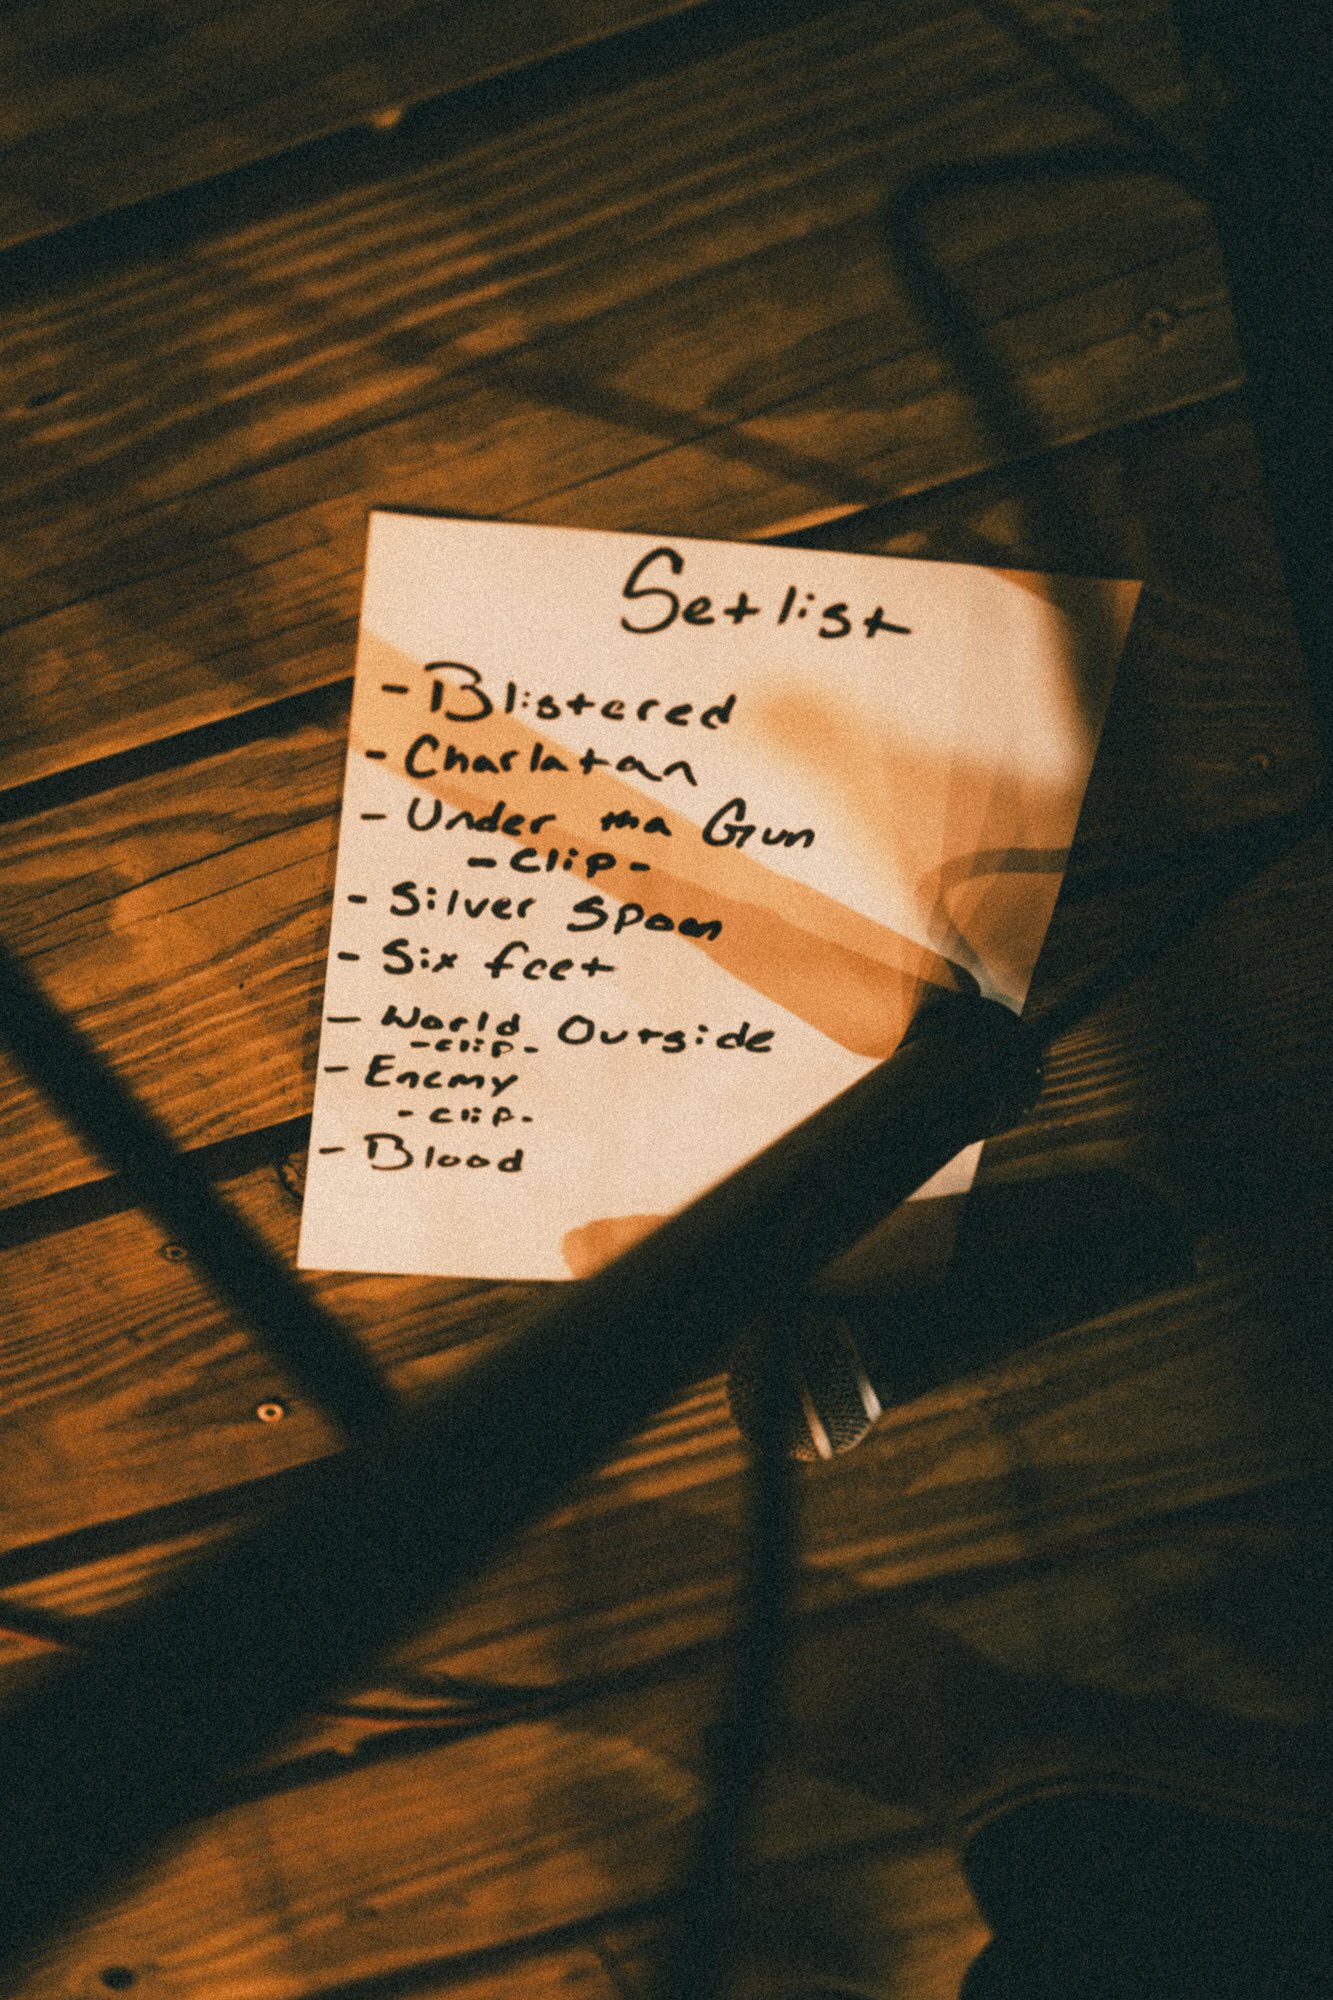 Setlist
- Blistered
- Charlatan
- Under tha Gun
- Clip -
- Silver Spoon
- Six feet
- World Outside
- clip -
- Enemy
- clip -
- Blood